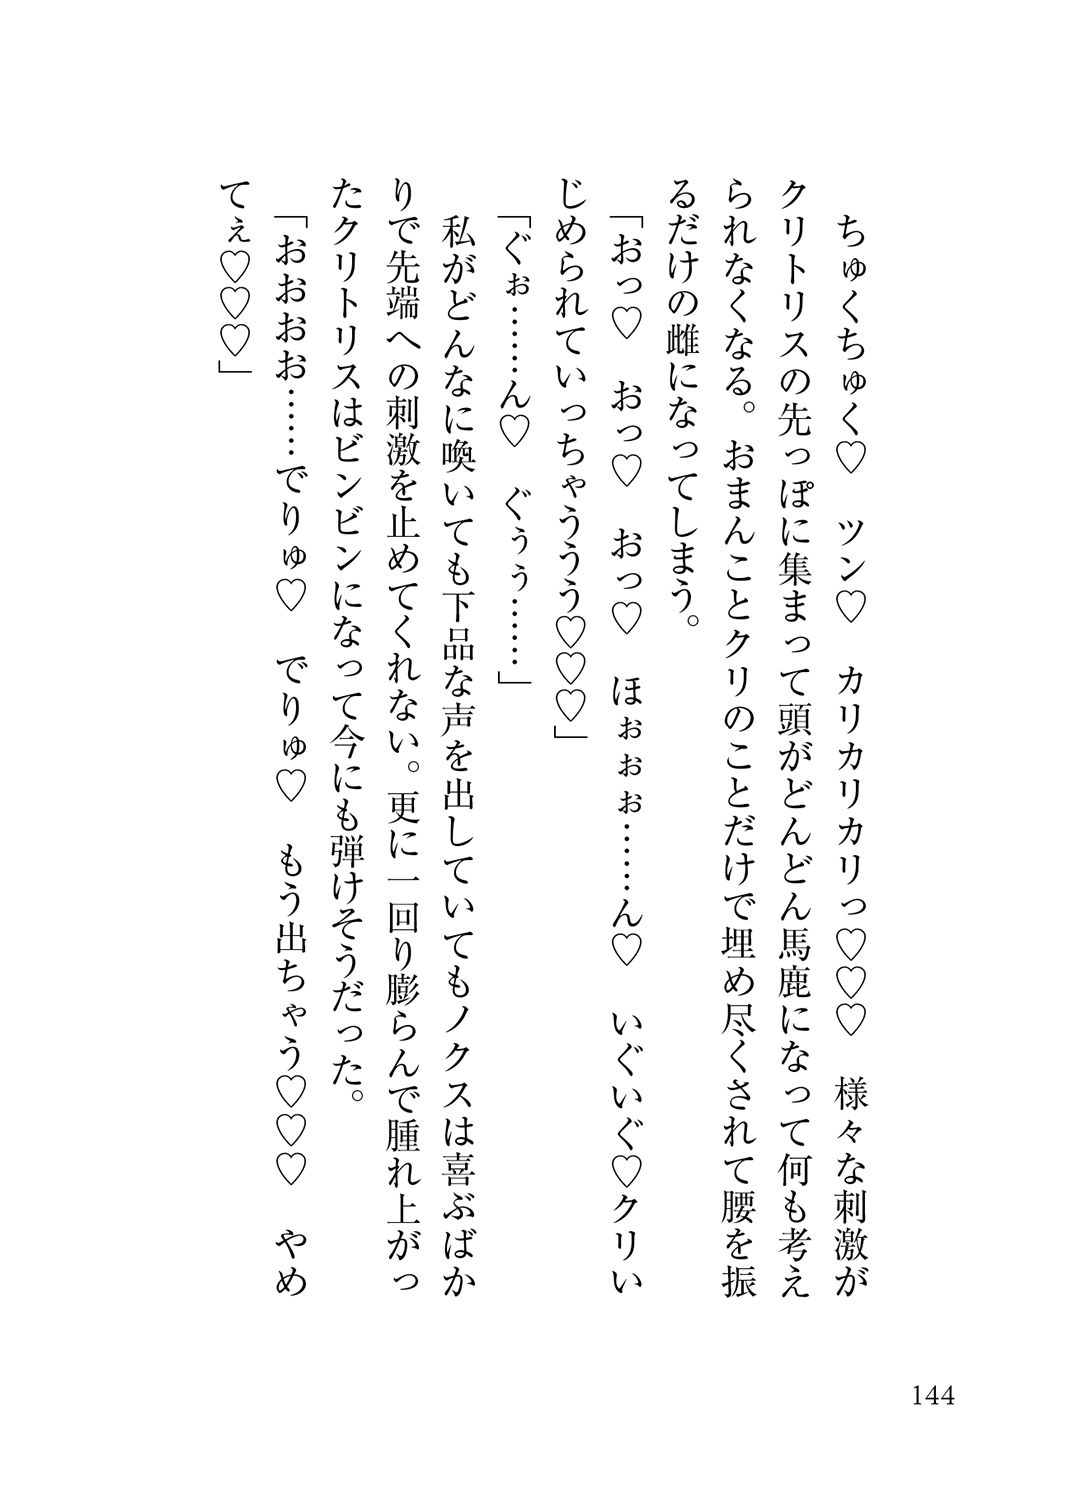 ちゅくちゅく♡　ツン♡　カリカリカリっ♡♡♡　様々な刺激が
クリトリスの先っぽに集まって頭がどんどん馬鹿になって何も考え
られなくなる。おまんことクリのことだけで埋め尽くされて腰を振
るだけの雌になってしまう。
「おっ♡　おっ♡　おっ♡　ほぉぉぉ……ん♡　いぐいぐ♡クリい
じめられていっちゃううう♡♡♡」
「ぐぉ……ん♡　ぐぅぅ……」
私がどんなに喚いても下品な声を出していてもノクスは喜ぶばか
りで先端への刺激を止めてくれない。更に一回り膨らんで腫れ上がっ
たクリトリスはビンビンになって今にも弾けそうだった。
「おおおお……でりゅ♡　でりゅ♡　もう出ちゃう♡♡♡　やめ
てぇ♡♡♡」
144